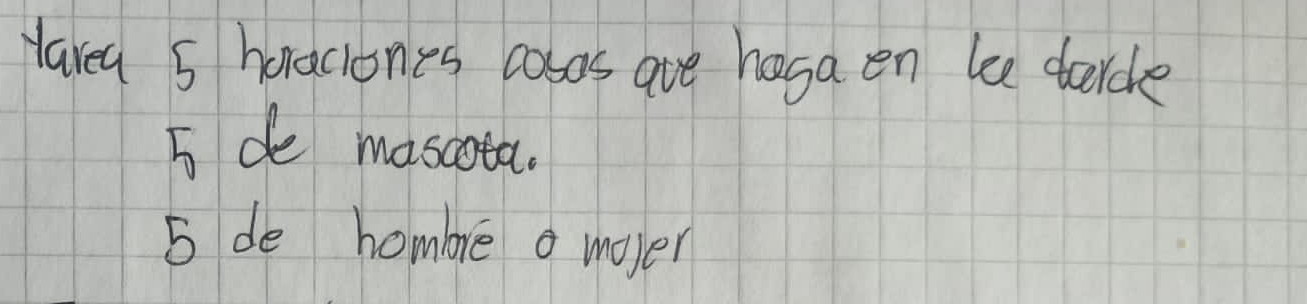 tarea 5 horaciones cosas que haga en la tarde
5 de mascota.
5 de hombre o mujer